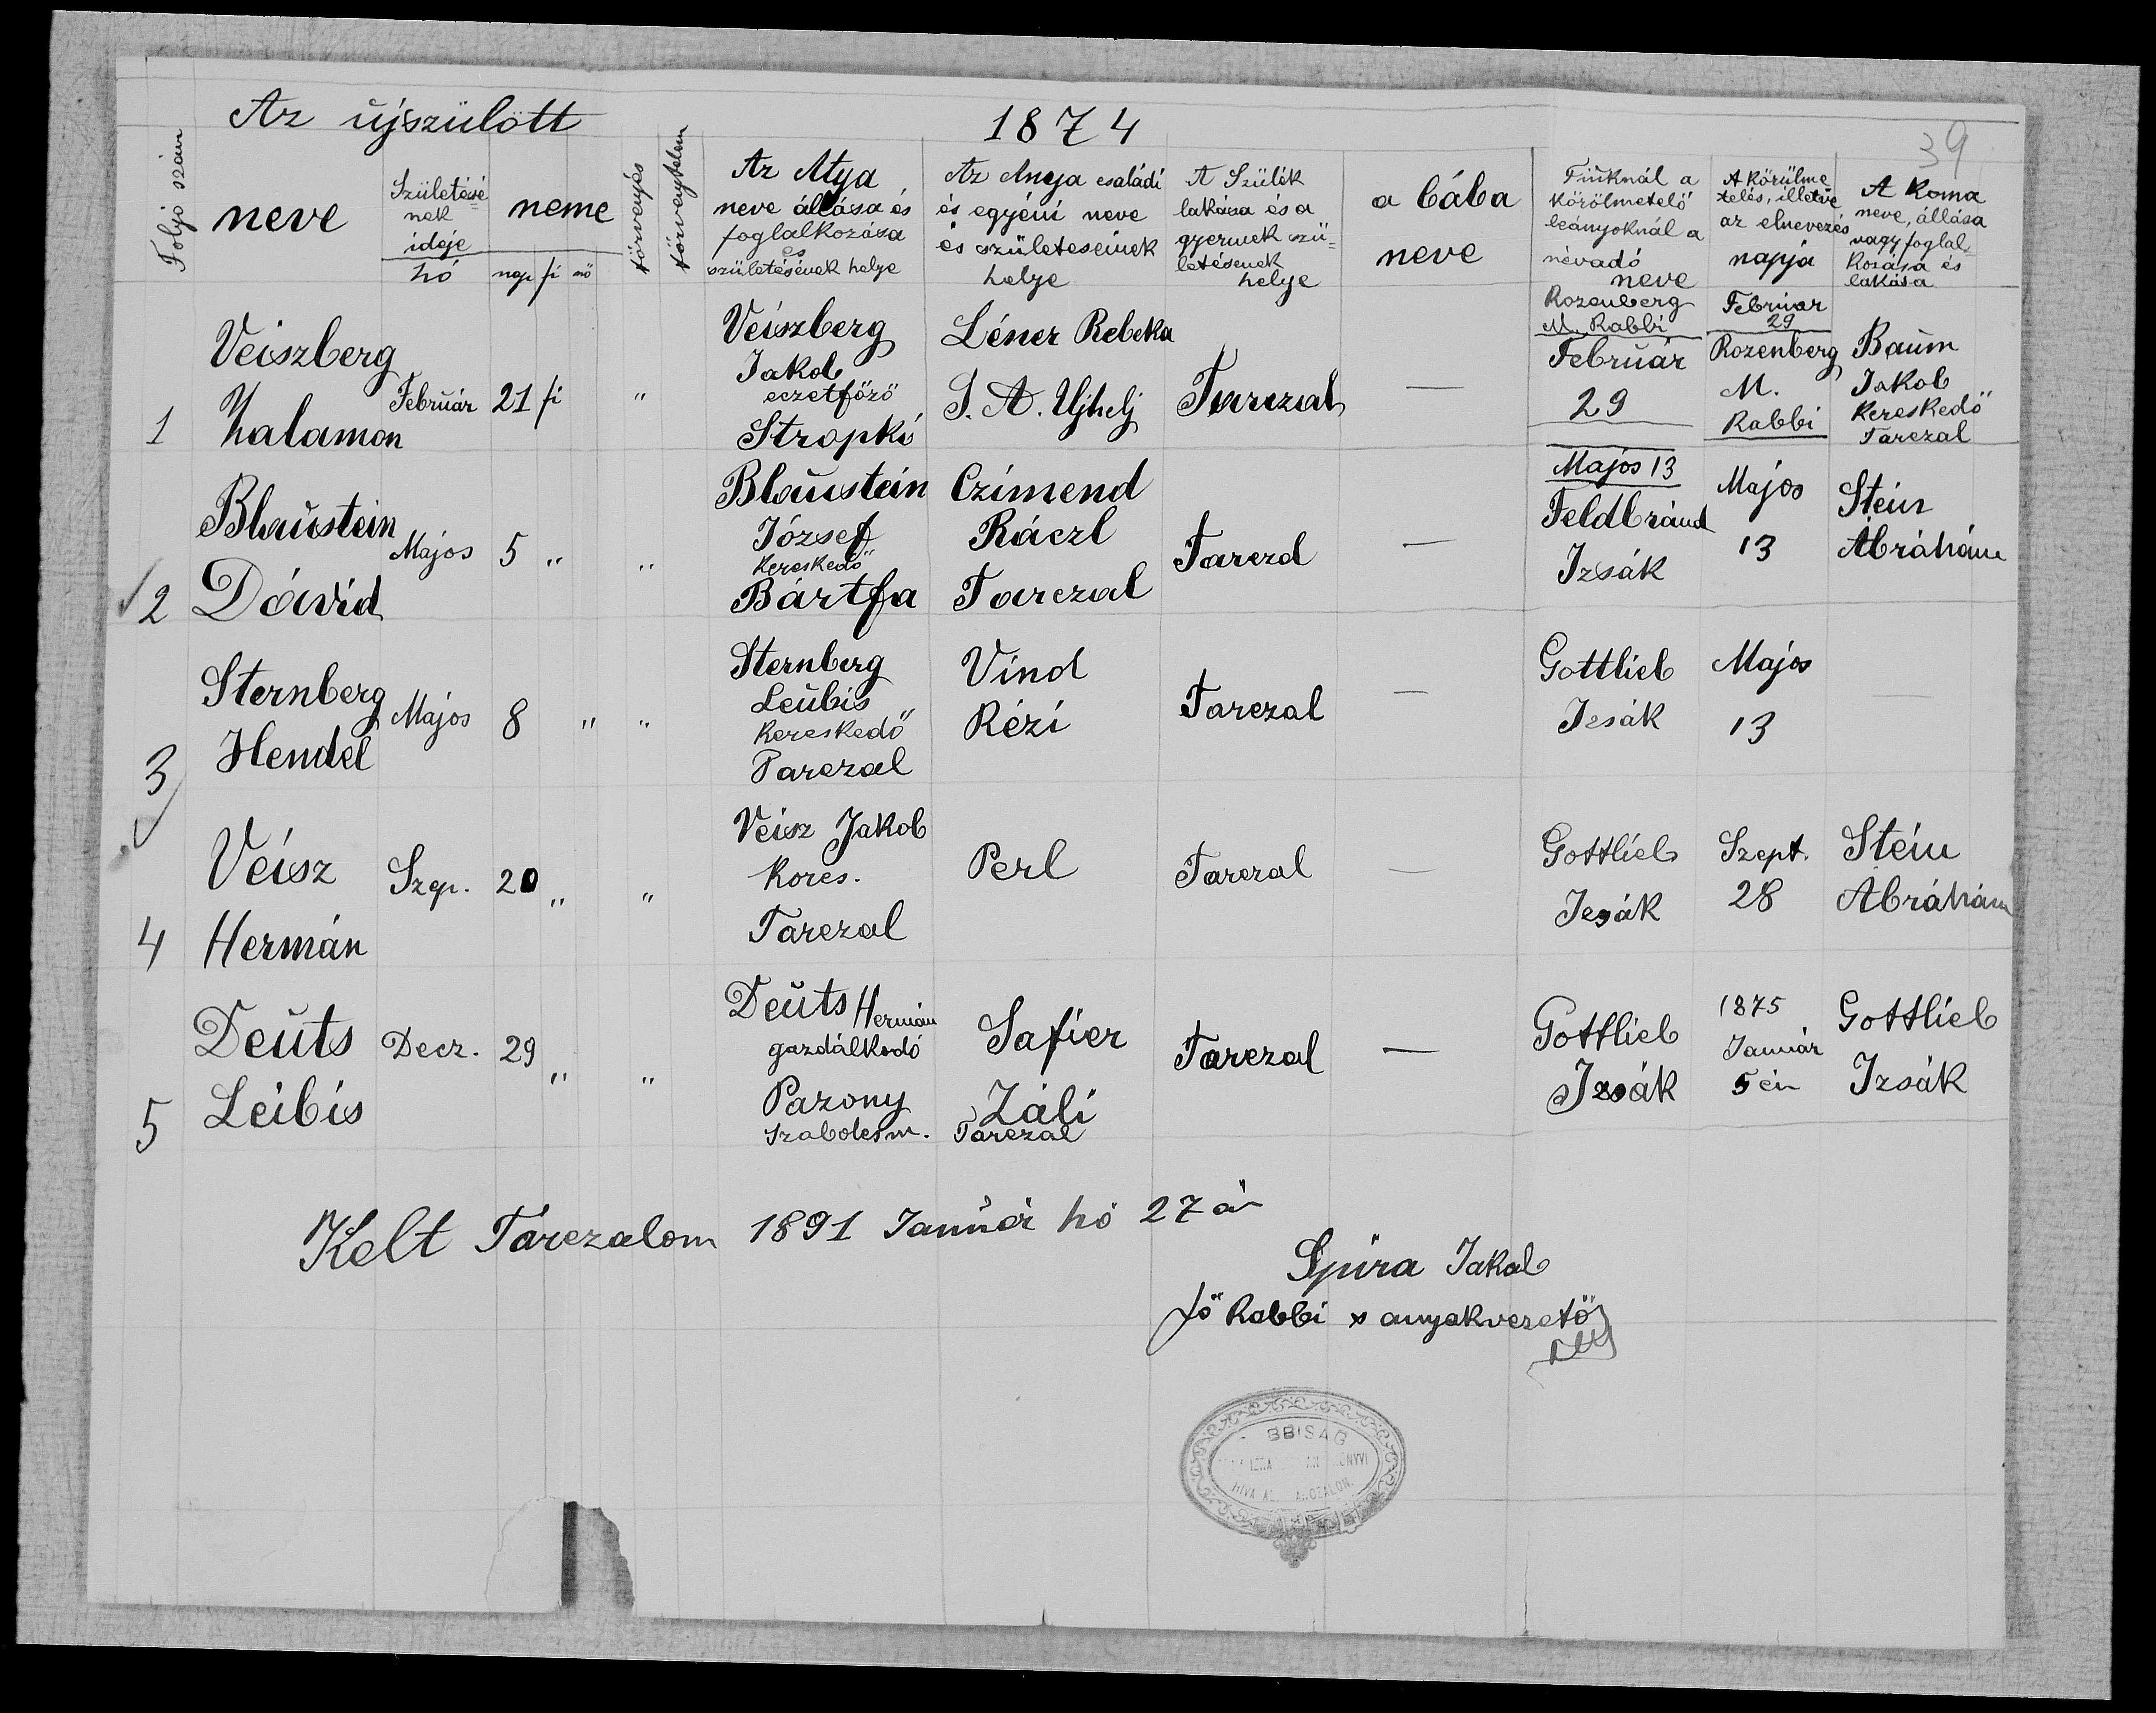 39
Az ujszülött 1874
Foljó szám
neve
Születésé=
nek
ideje
hó
neme
nap fi nő
törvenyés
törvenytelen
Az Atya
neve állása és
foglalkozása
és
születésének helye
Az Anyja családi
és egyéni neve
és születeseinek
helye
A Szülők
lakása és a
gyermek szü=
letésenek
helye
a bába
neve
Fiúknál a
körölmetelő
leányoknál a
névadó
neve
A körülme
telés, illetve
az elnevezés
napja
A Koma
neve, állása
vagy foglal
kozása és
lakása
1
Veiszberg
Zalamon
Február 21 fi "
Veiszberg
Jakob
eczetfőző
Stropkó
Léner Rebeka
S. A. Ujhelj
Tarczal
—
Rozenberg
M. Rabbi
Február
29
Február
29
Rozenberg
M.
Rabbi
Baum
Jakob
Kereskedő
Tarczal
2
Blaustein
Dávid
Majos 5 " "
Blaustein
József
Kereskedő
Bártfa
Czimend
Ráczl
Tarczal
Tarczal
—
Majos 13
Feldbránd
Izsák
Majos
13
Stein
Ábrahám
3
Sternberg
Hendel
Majos 8 " "
Sternberg
Leubis
Kereskedő
Tarczal
Vind
Rézi
Tarczal
—
Gottlieb
Izsák
Majos
13
—
4
Veisz
Hermán
Szep. 20 " "
Veisz Jakob
Keres.
Tarczal
Perl
Tarczal
—
Gottlieb
Izsák
Szept.
28
Stein
Abráhám
5
Deuts
Leibis
Decz. 29 " "
Deuts Hermán
gazdálkodó
Pazony
Szabolcs m.
Safier
Záli
Tarczal
Tarczal
—
Gottlieb
Izsák
1875
Január
5 én
Gottlieb
Izsák
Kelt Tarczalon 1891 Január hó 27 án
Spira Jakab
fő Rabbi s anyakvezető
BBISÁG